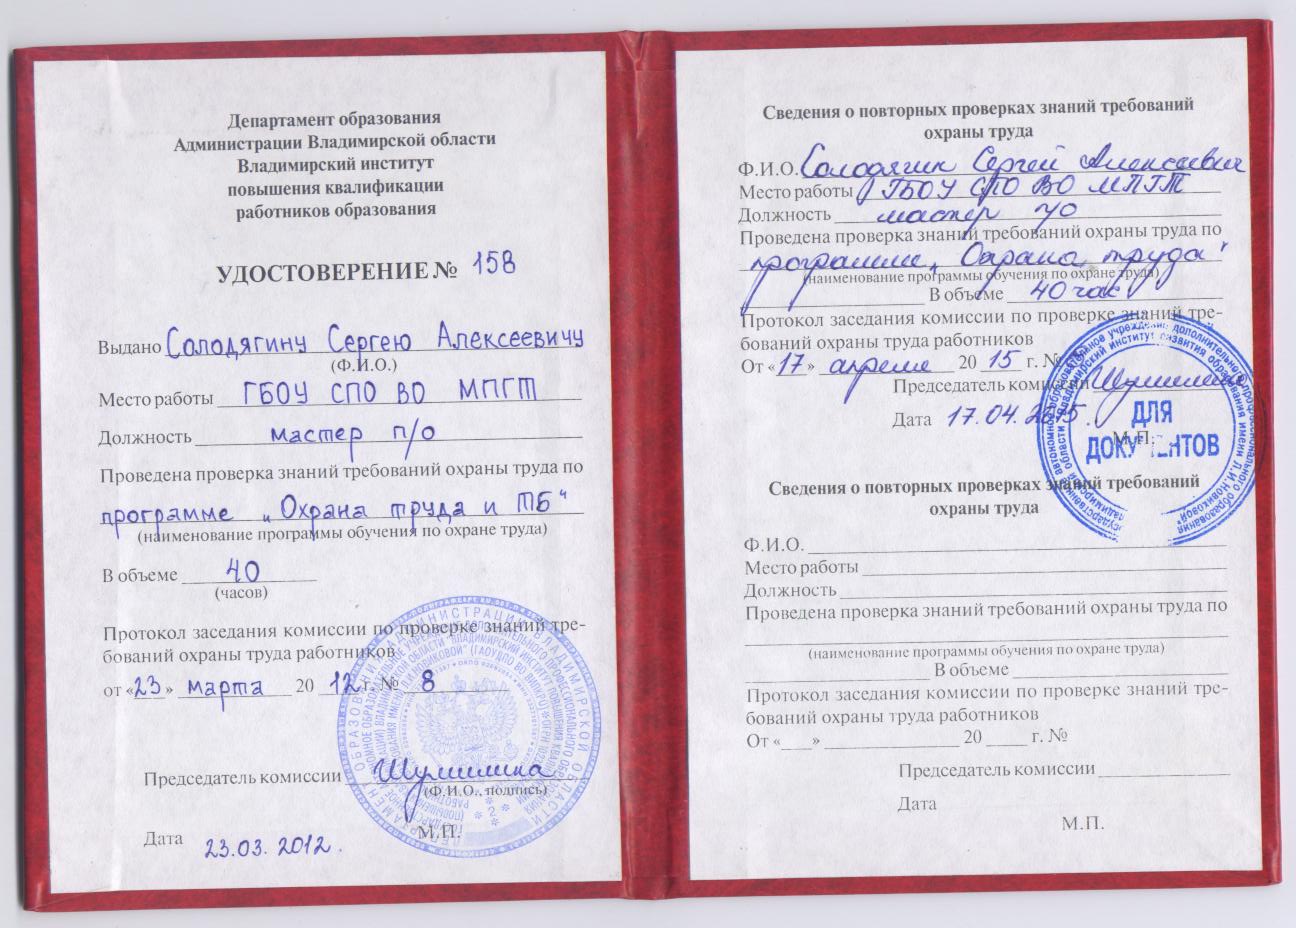 Департамент образования
Администрации Владимирской области
Владимирский институт
повышения квалификации
работников образования
УДОСТОВЕРЕНИЕ № 158
Выдано Солодягину Сергею Алексеевичу
(Ф.И.О.)
Место работы ГБОУ СПО ВО МПГТ
Должность мастер п/о
Проведена проверка знаний требований охраны труда по
программе „Охрана труда и ТБ“
(наименование программы обучения по охране труда)
В объеме 40
(часов)
Протокол заседания комиссии по проверке знаний тре-
бований охраны труда работников
от «23» марта 20 12 г. № 8
Председатель комиссии Шумилина
(Ф.И.О., подпись)
М.П.
Дата 23.03. 2012.
Сведения о повторных проверках знаний требований
охраны труда
Ф.И.О. Солодягин Сергей Алексеевич
Место работы ГБОУ СПО ВО МПГТ
Должность мастер п/о
Проведена проверка знаний требований охраны труда по
программе „Охрана труда“
(наименование программы обучения по охране труда)
В объеме 40 час
Протокол заседания комиссии по проверке знаний тре-
бований охраны труда работников
От «17» апреля 20 15 г. №
Председатель комиссии Шумилина
Дата 17.04.2015.
М.П.
ДЛЯ
ДОКУМЕНТОВ
Сведения о повторных проверках знаний требований
охраны труда
Ф.И.О.
Место работы
Должность
Проведена проверка знаний требований охраны труда по
(наименование программы обучения по охране труда)
В объеме
Протокол заседания комиссии по проверке знаний тре-
бований охраны труда работников
От «___» 20 ___ г. №
Председатель комиссии
Дата
М.П.